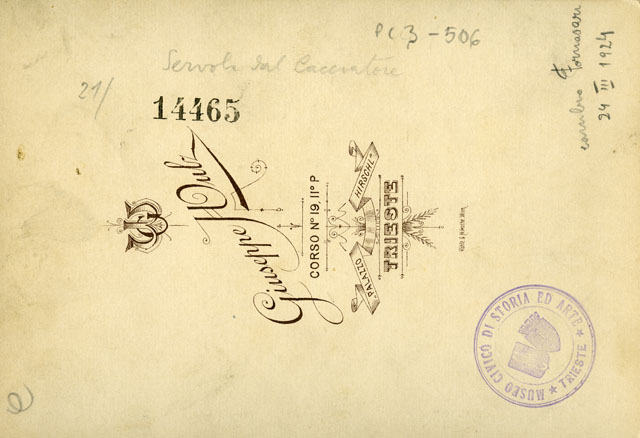 PC 3 - 506
Servola dal Cacciatore
21/
14465
Giuseppe Wulz
CORSO Nº 19, IIº P
PALAZZO HIRSCHL
TRIESTE
cambio Tomasini
24 III 1924
MUSEO CIVICO DI STORIA ED ARTE * TRIESTE *